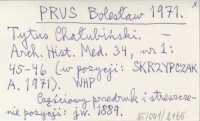 PRUS Bolesław 1971.
Tytus Chałubiński. –
Arch. Hist. Med. 34, nr 1:
45-46 (w pozycji: SKRZYPCZAK
A. 1971). WHP
Częściowy przedruk i streszcze-
nie pozycji: jw. 1889.